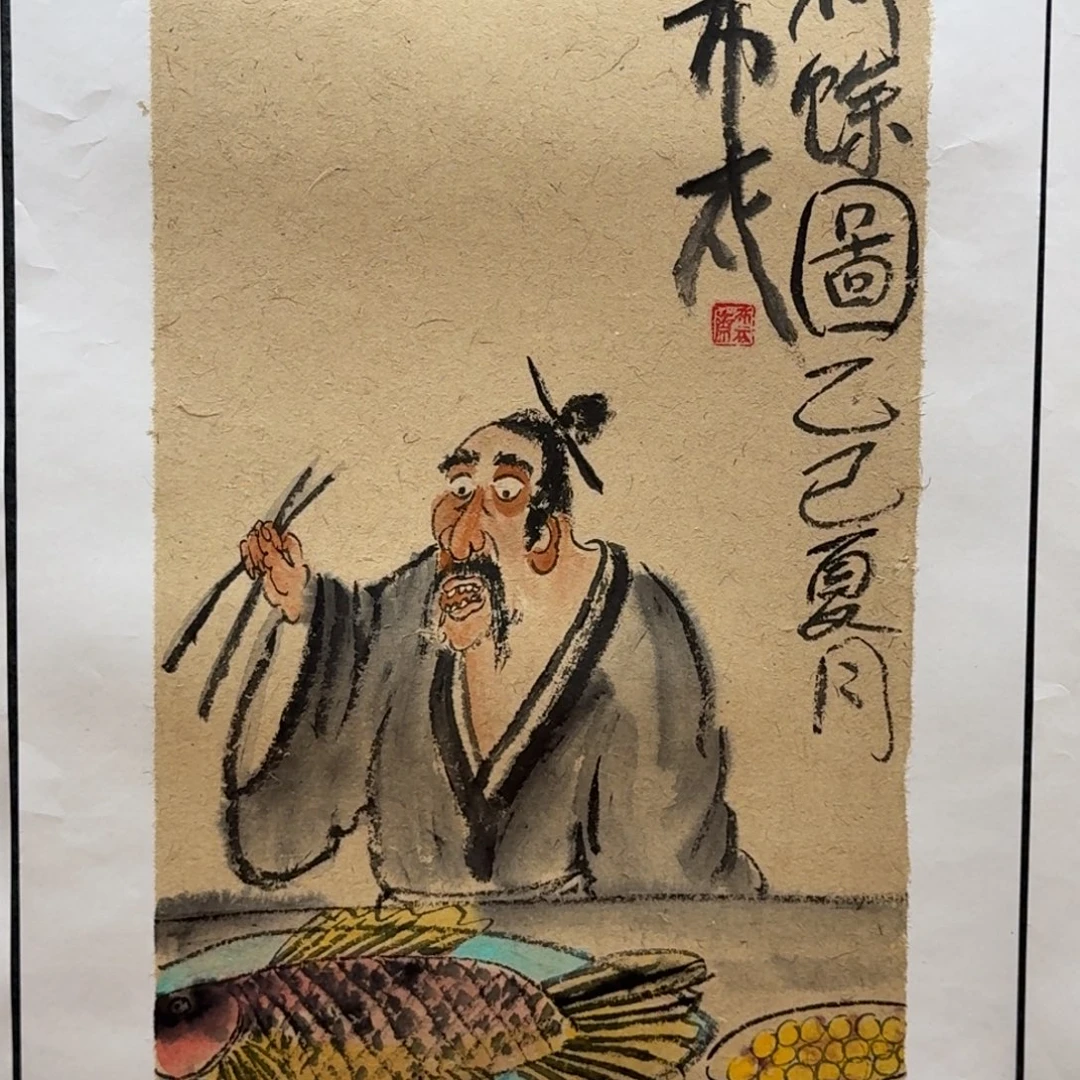 餘圖乙巳夏月
布衣